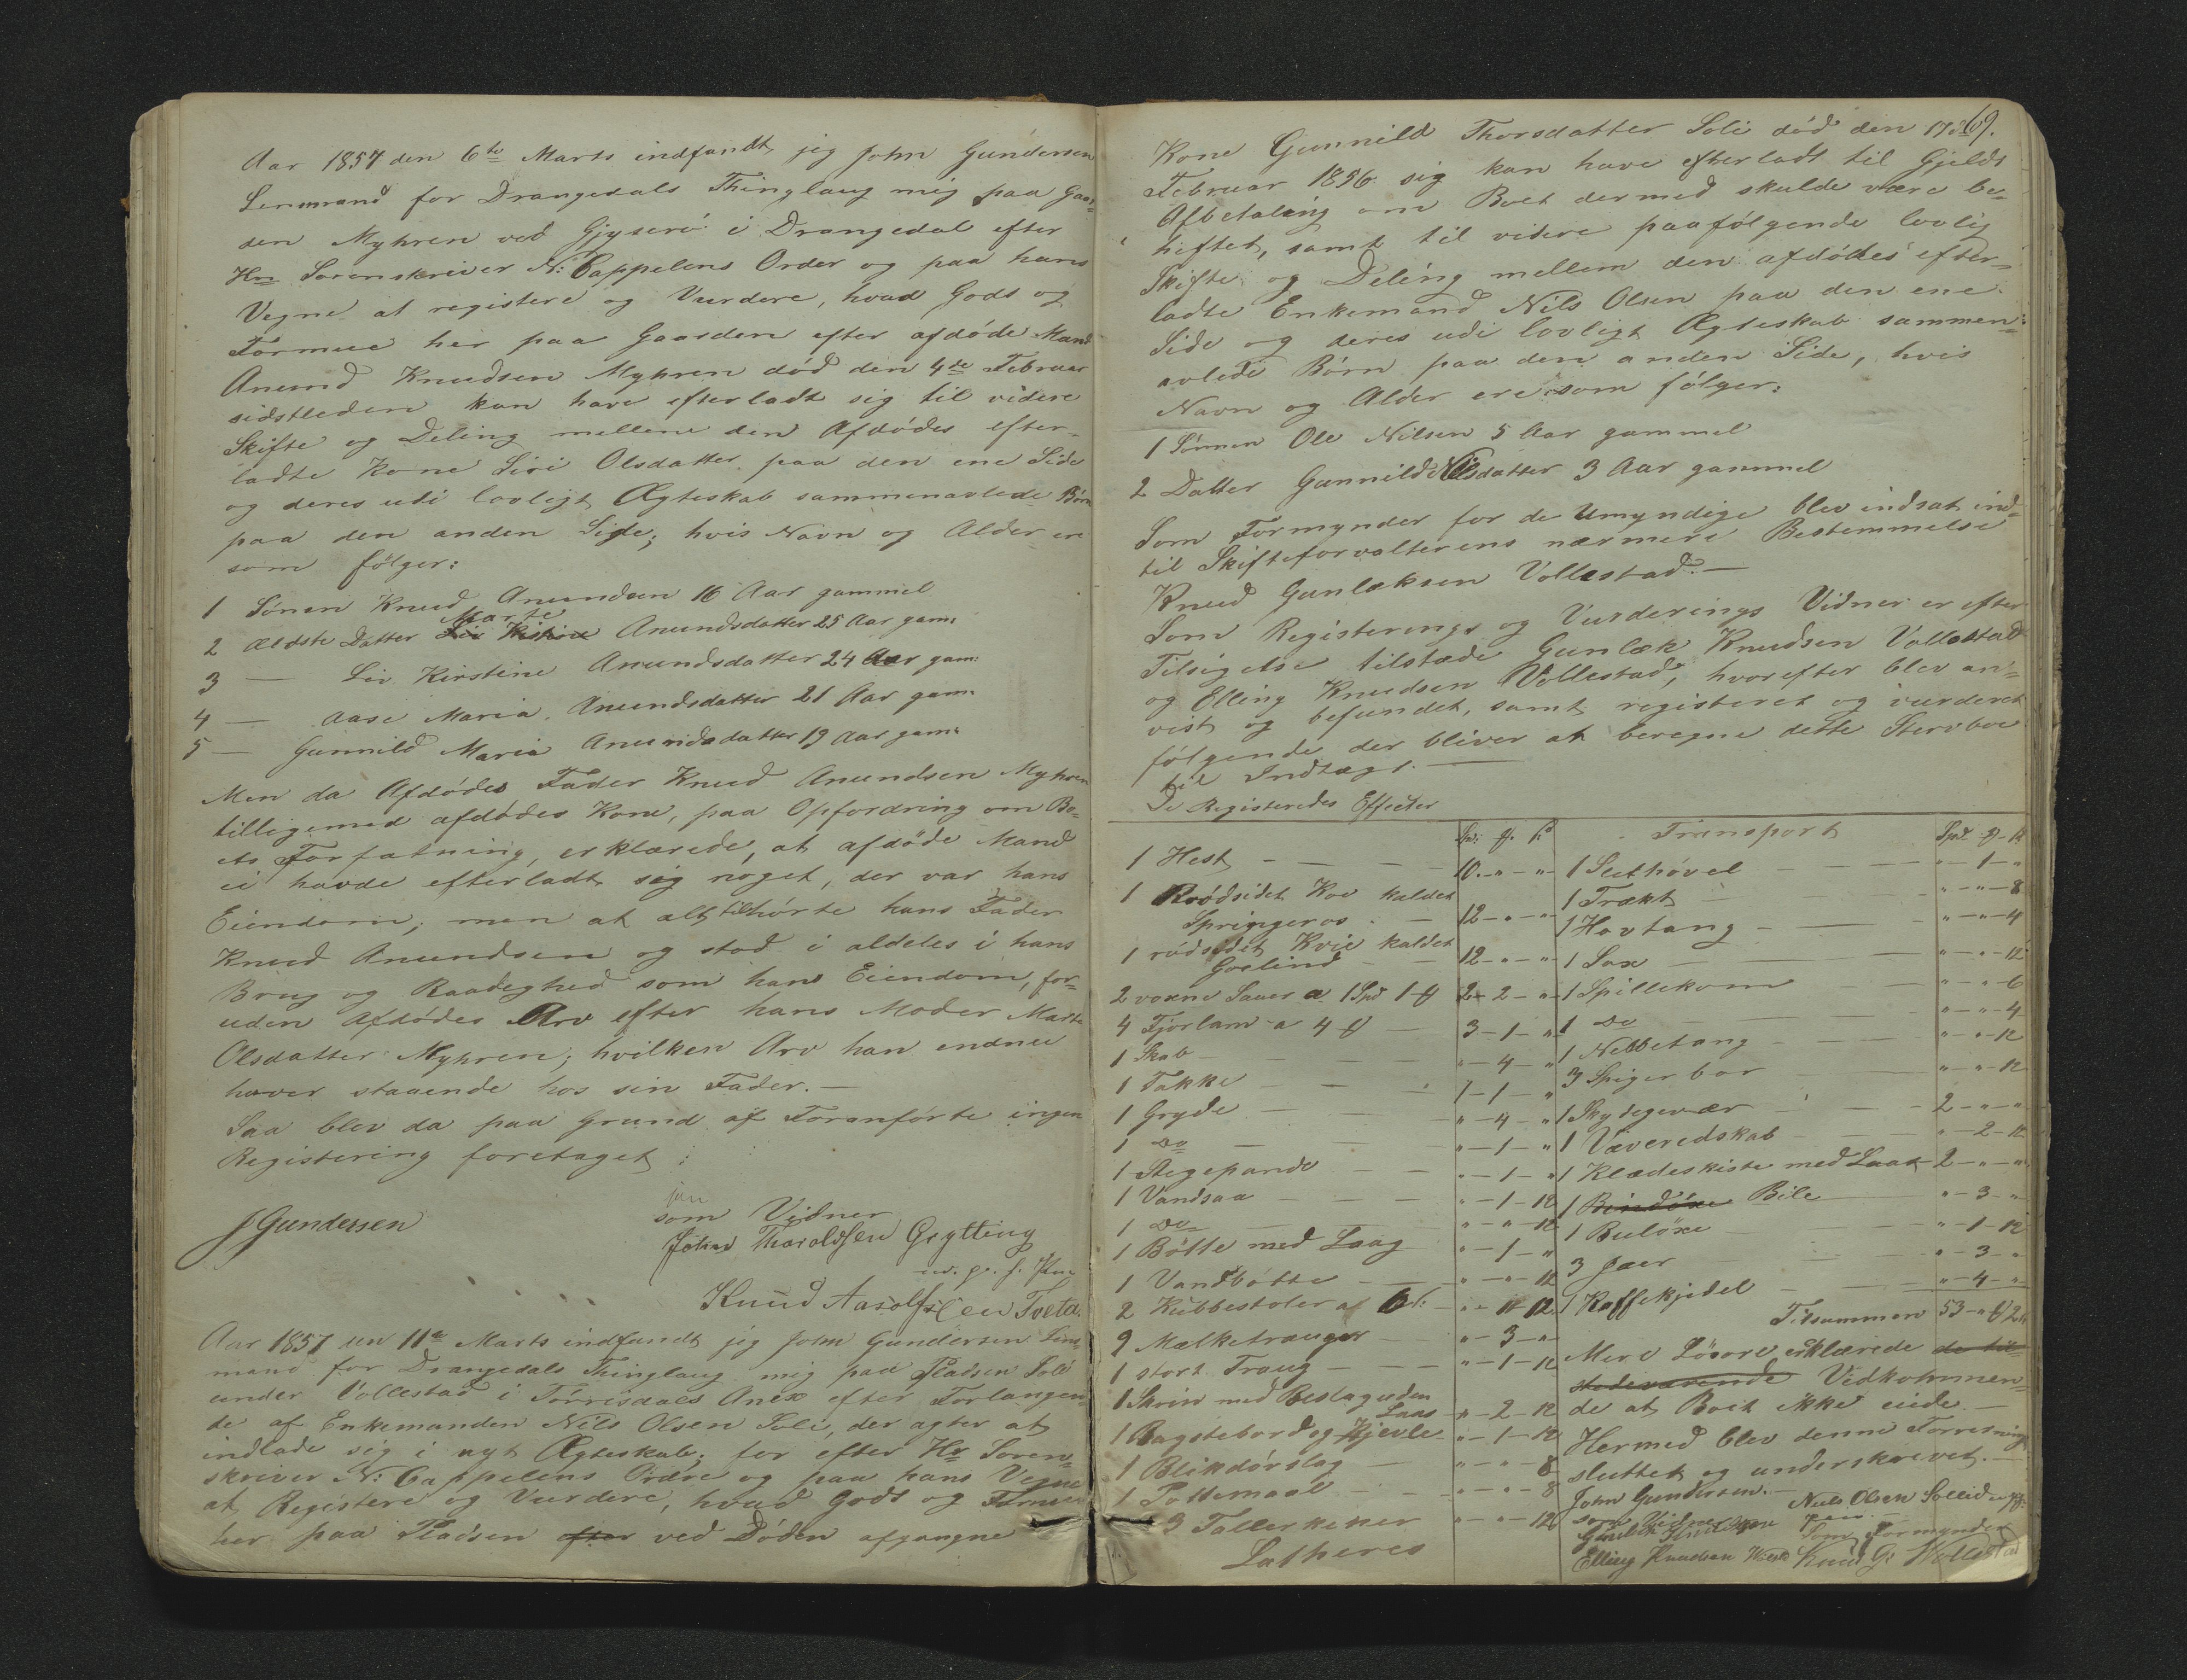 Aar 1857 den 6te Marts indfandt jeg John Gundersen
Lensmand for Drangedals Thinglaug mig paa Gaar=
den Myhren ved Gjyserö i Drangedal efter
Hr Sorenskriver N: Cappelens Order og paa hans
Vegne at registere og Vurdere, hvad Gods og
Formue her paa Gaarden efter afdöde Mand
Anund Knudsen Myhren död den 4de Februar
sidstleden kan have efterladt sig til videre
Skifte og Deling mellem den Afdödes efter=
ladte Kone Siri Olsdatter paa den ene Side
og deres udi lovligt Ægteskab sammenavlede Börn
paa den anden Side; hvis Navn og Alder er
som fölger:
1 Sönen Knud Anundsen 16 Aar gammel
2 Ældste Datter Marte Anundsdatter 25 Aar gam:
3 — Liv Kirstine Anundsdatter 24 Aar gam:
4 — Aase Maria Anundsdatter 21 Aar gam:
5 — Gunnild Maria Anundsdatter 19 Aar gam:
Men da Afdödes Fader Knud Anundsen Myhren
tilligemed afdödes Kone, paa Opfordring om Bo=
ets Forfatning, erklærede, at afdöde Mand
ei havde efterladt sig noget, der var hans
Eiendom; men at alt tilhörte hans Fader
Knud Anundsen og stod i aldeles i hans
Brug og Raadighed som hans Eiendom, for=
uden Afdödes Arv efter hans Moder Marte
Olsdatter Myhren; hvilken Arv han endnu
haver staaende hos sin Fader.—
Saa blev da paa Grund af Foranförte ingen
Registering foretaget:
JGundersen
som Vidner
Johan Tharaldsen Grytting
m. p. f. Pen
Knud Aasolfsen Tveta
Aar 1857 den 11te Marts indfandt jeg John Gundersen Lens
mand for Drangedals Thinglaug mig paa Pladsen Soli
under Vollestad i Törrisdals Anex efter Forlangen=
de af Enkemanden Nils Olsen Soli, der agter at
indlade sig i nyt Ægteskab; for efter Hr Soren=
skriver N: Cappelens Ordre og paa hans Vegne
at Registere og Vurdere, hvad Gods og Formue
her paa Pladsen efter ved Döden afgangne
69.
Kone Gunnild Thorsdatter Soli död den 17de
Februar 1856 sig kan have efterladt til Gjelds
Afbetaling om Boet dermed skulde være be=
heftet, samt til videre paafölgende lovlig
Skifte og Deling mellem den afdödes efter=
ladte Enkemand Nils Olsen paa den ene
Side og deres udi lovligt Ægteskab sammen=
avlede Börn paa den anden Side, hvis
Navn og Alder ere som fölger:
1 Sönnen Ole Nilsen 5 Aar gammel
2 Datter Gunnild Nilsdatter 3 Aar gammel
Som Formynder for de Umyndige blev indsat ind=
til Skifteforvalterens nærmere Bestemmelse
Knud Gunlæksen Vollestad.—
Som Registerings og Vurderings Vidner er efter
Tilsigelse tilstæde Gunlæk Knudsen Vollestad
og Elling Knudsen Vollestad, hvorefter blev an=
vist og befundet, samt registeret og vurderet
fölgende der bliver at beregne dette Stervboe
til Indtægt.—
De Registeredes Effecter
1 Hest — 10 - " - "
1 Röödsidet Koe kaldet
Springeros — 12 - " - "
1 rödsidet Kvie kaldet
Goelind — 12 - " - "
2 voxne Sauer a 1 Spd 1 ℔ 2 - 2 - "
4 Fjorlam a 4 ℔ — 3 - 1 - "
1 Skab — " - 4 - "
1 Takke — 1 - 1 - "
1 Gryde — " - 4 - "
1 Do — " - 1 - "
1 Stegepande — " - 1 - "
1 Vandsaa — " - 1 - 12
1 Do — " - " - 12
1 Bötte med Laag " - 1 - "
1 Vandbötte — " - " - 12
2 Kubbestoler a 6 s: — " - " - 12
9 Mælketrauger " - 3 - "
1 stort Traug — " - 1 - 12
1 Skrin med Beslag uden
Laas " - 2 - 12
1 Bagstebord og Kjevle " - 1 - 12
1 Blikdörslag " - " - 8
1 Pottemaal " - " - 8
3 Tallerkener " - " - 12
Latheres
Transport Spd - ℔ - s
1 Slethövel " - 1 - "
1 Trakt " - " - 8
1 Hovtang " - " - 4
1 Sax " - " - 12
1 Spillekom " - " - 6
1 Do " - " - 4
1 Nebbetang " - " - 12
3 Spigerbor " - " - 12
1 Skydegevær 2 - " - "
1 Væveredskab " - 2 - 12
1 Klædeskiste med Laas 2 - " - "
1 Bindöxe Bile " - 3 - "
1 Bulöxe " - 1 - 12
3 Jaer " - 3 - "
1 Kaffekjedel " - 4 - "
Tilsammen 53 - " ℔ 2 s
Mere Lösöre erklærede de til
stedeværende Vedkommen=
de at Boet ikke eiede.—
Hermed blev denne Forretning
sluttet og underskrevet.—
John Gundersen.—
som Vidner
Nils Olsen Sollid
Gunlek Knudsen
Som Formynder
Elling Knudsen
Knud G: Wollestad